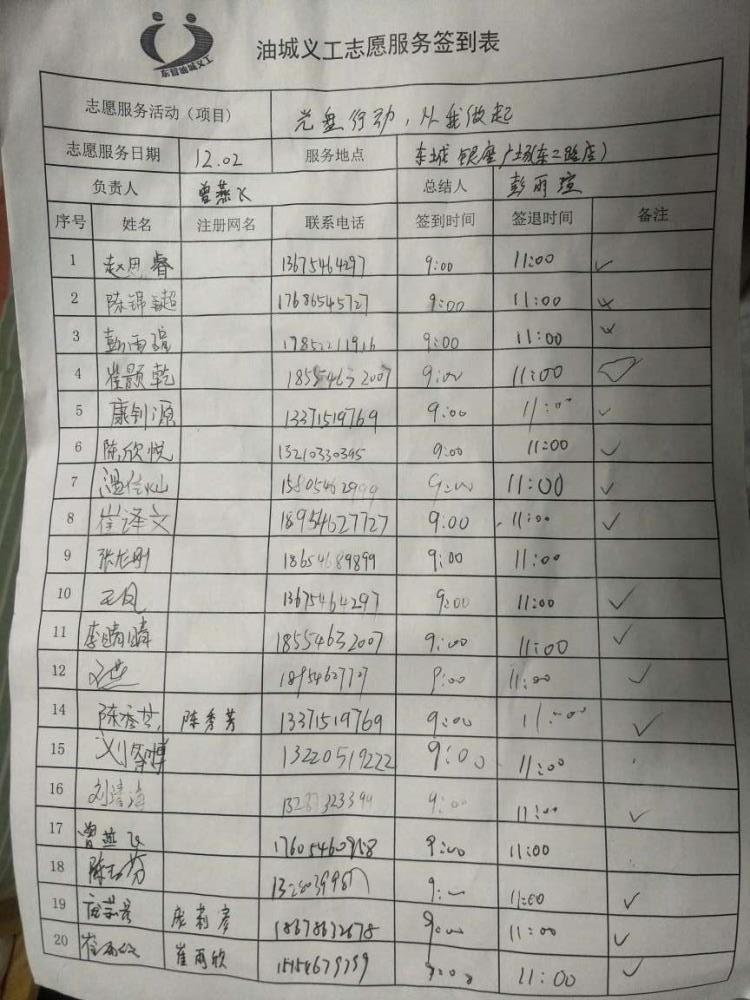 油城义工志愿服务签到表
志愿服务活动（项目） 光盘行动，从我做起
志愿服务日期 12.02 服务地点 东城银座广场(东二路店)
负责人 曾燕飞 总结人 彭雨瑄
序号 姓名 注册网名 联系电话 签到时间 签退时间 备注
1 赵思睿 13675464297 9:00 11:00 ✓
2 陈锦超 17686545727 9:00 11:00
3 彭雨瑄 17852211916 9:00 11:00
4 崔颢乾 18554632007 9:00 11:00
5 康钊源 13371519769 9:00 11:00 ✓
6 陈欣悦 13210330395 9:00 11:00 ✓
7 9:00 11:00 ✓
8 崔译文 18954627727 9:00 11:00 ✓
9 张龙刚 18654689899 9:00 11:00
10 王凤 13675464297 9:00 11:00 ✓
11 李晴晴 18554632007 9:00 11:00 ✓
12 9:00 11:00 ✓
14 陈秀芳 陈秀芳 13371519769 9:00 11:00 ✓
15 13220519222 9:00 11:00
16 刘清海 9:00 11:00 ✓
17 曾燕飞 17605460958 9:00 11:00
18 9:00 11:00 ✓
19 庞莉彦 18678632678 9:00 11:00 ✓
20 崔雨欣 崔雨欣 9:00 11:00 ✓